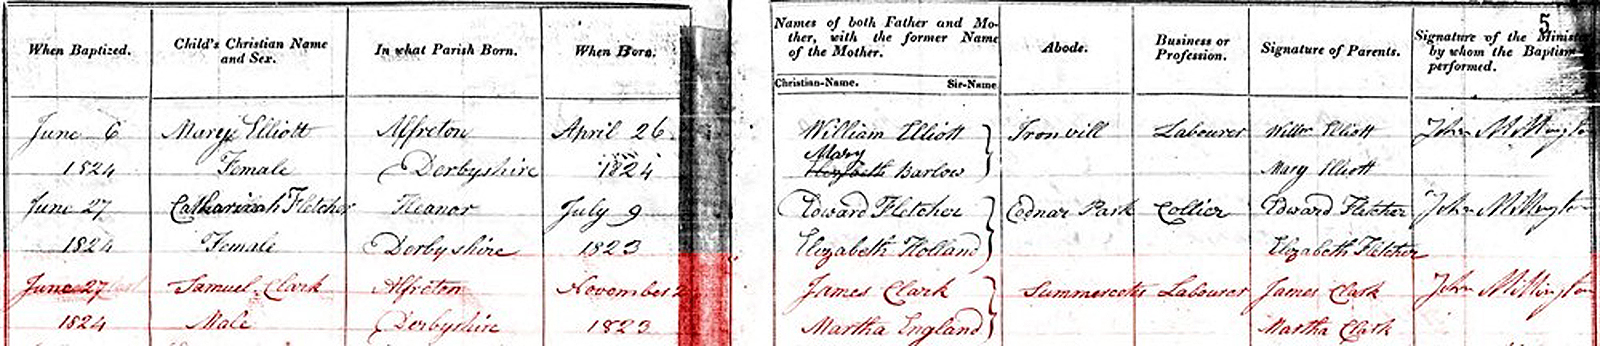 5
When Baptized. Child's Christian Name and Sex. In what Parish Born. When Born. Names of both Father and Mo-
ther, with the former Name
of the Mother. Abode. Business or Profession. Signature of Parents. Signature of the Minister by whom the Baptism performed.
Christian-Name. Sir-Name
June 6 Mary Elliott Alfreton April 26 William Elliott Ironvill Labourer Willm Elliott John Millington
Mary
1824 Female Derbyshire 1824 Elizabeth Barlow Mary Elliott
June 27 Catharinah Fletcher Heanor July 9 Edward Fletcher Codnar Park Collier Edward Fletcher John Millington
1824 Female Derbyshire 1823 Elizabeth Holland Elizabeth Fletcher
June 27 Samuel Clark Alfreton November 2 James Clark Summercotes Labourer James Clark John Millington
1824 Male Derbyshire 1823 Martha England Martha Clark